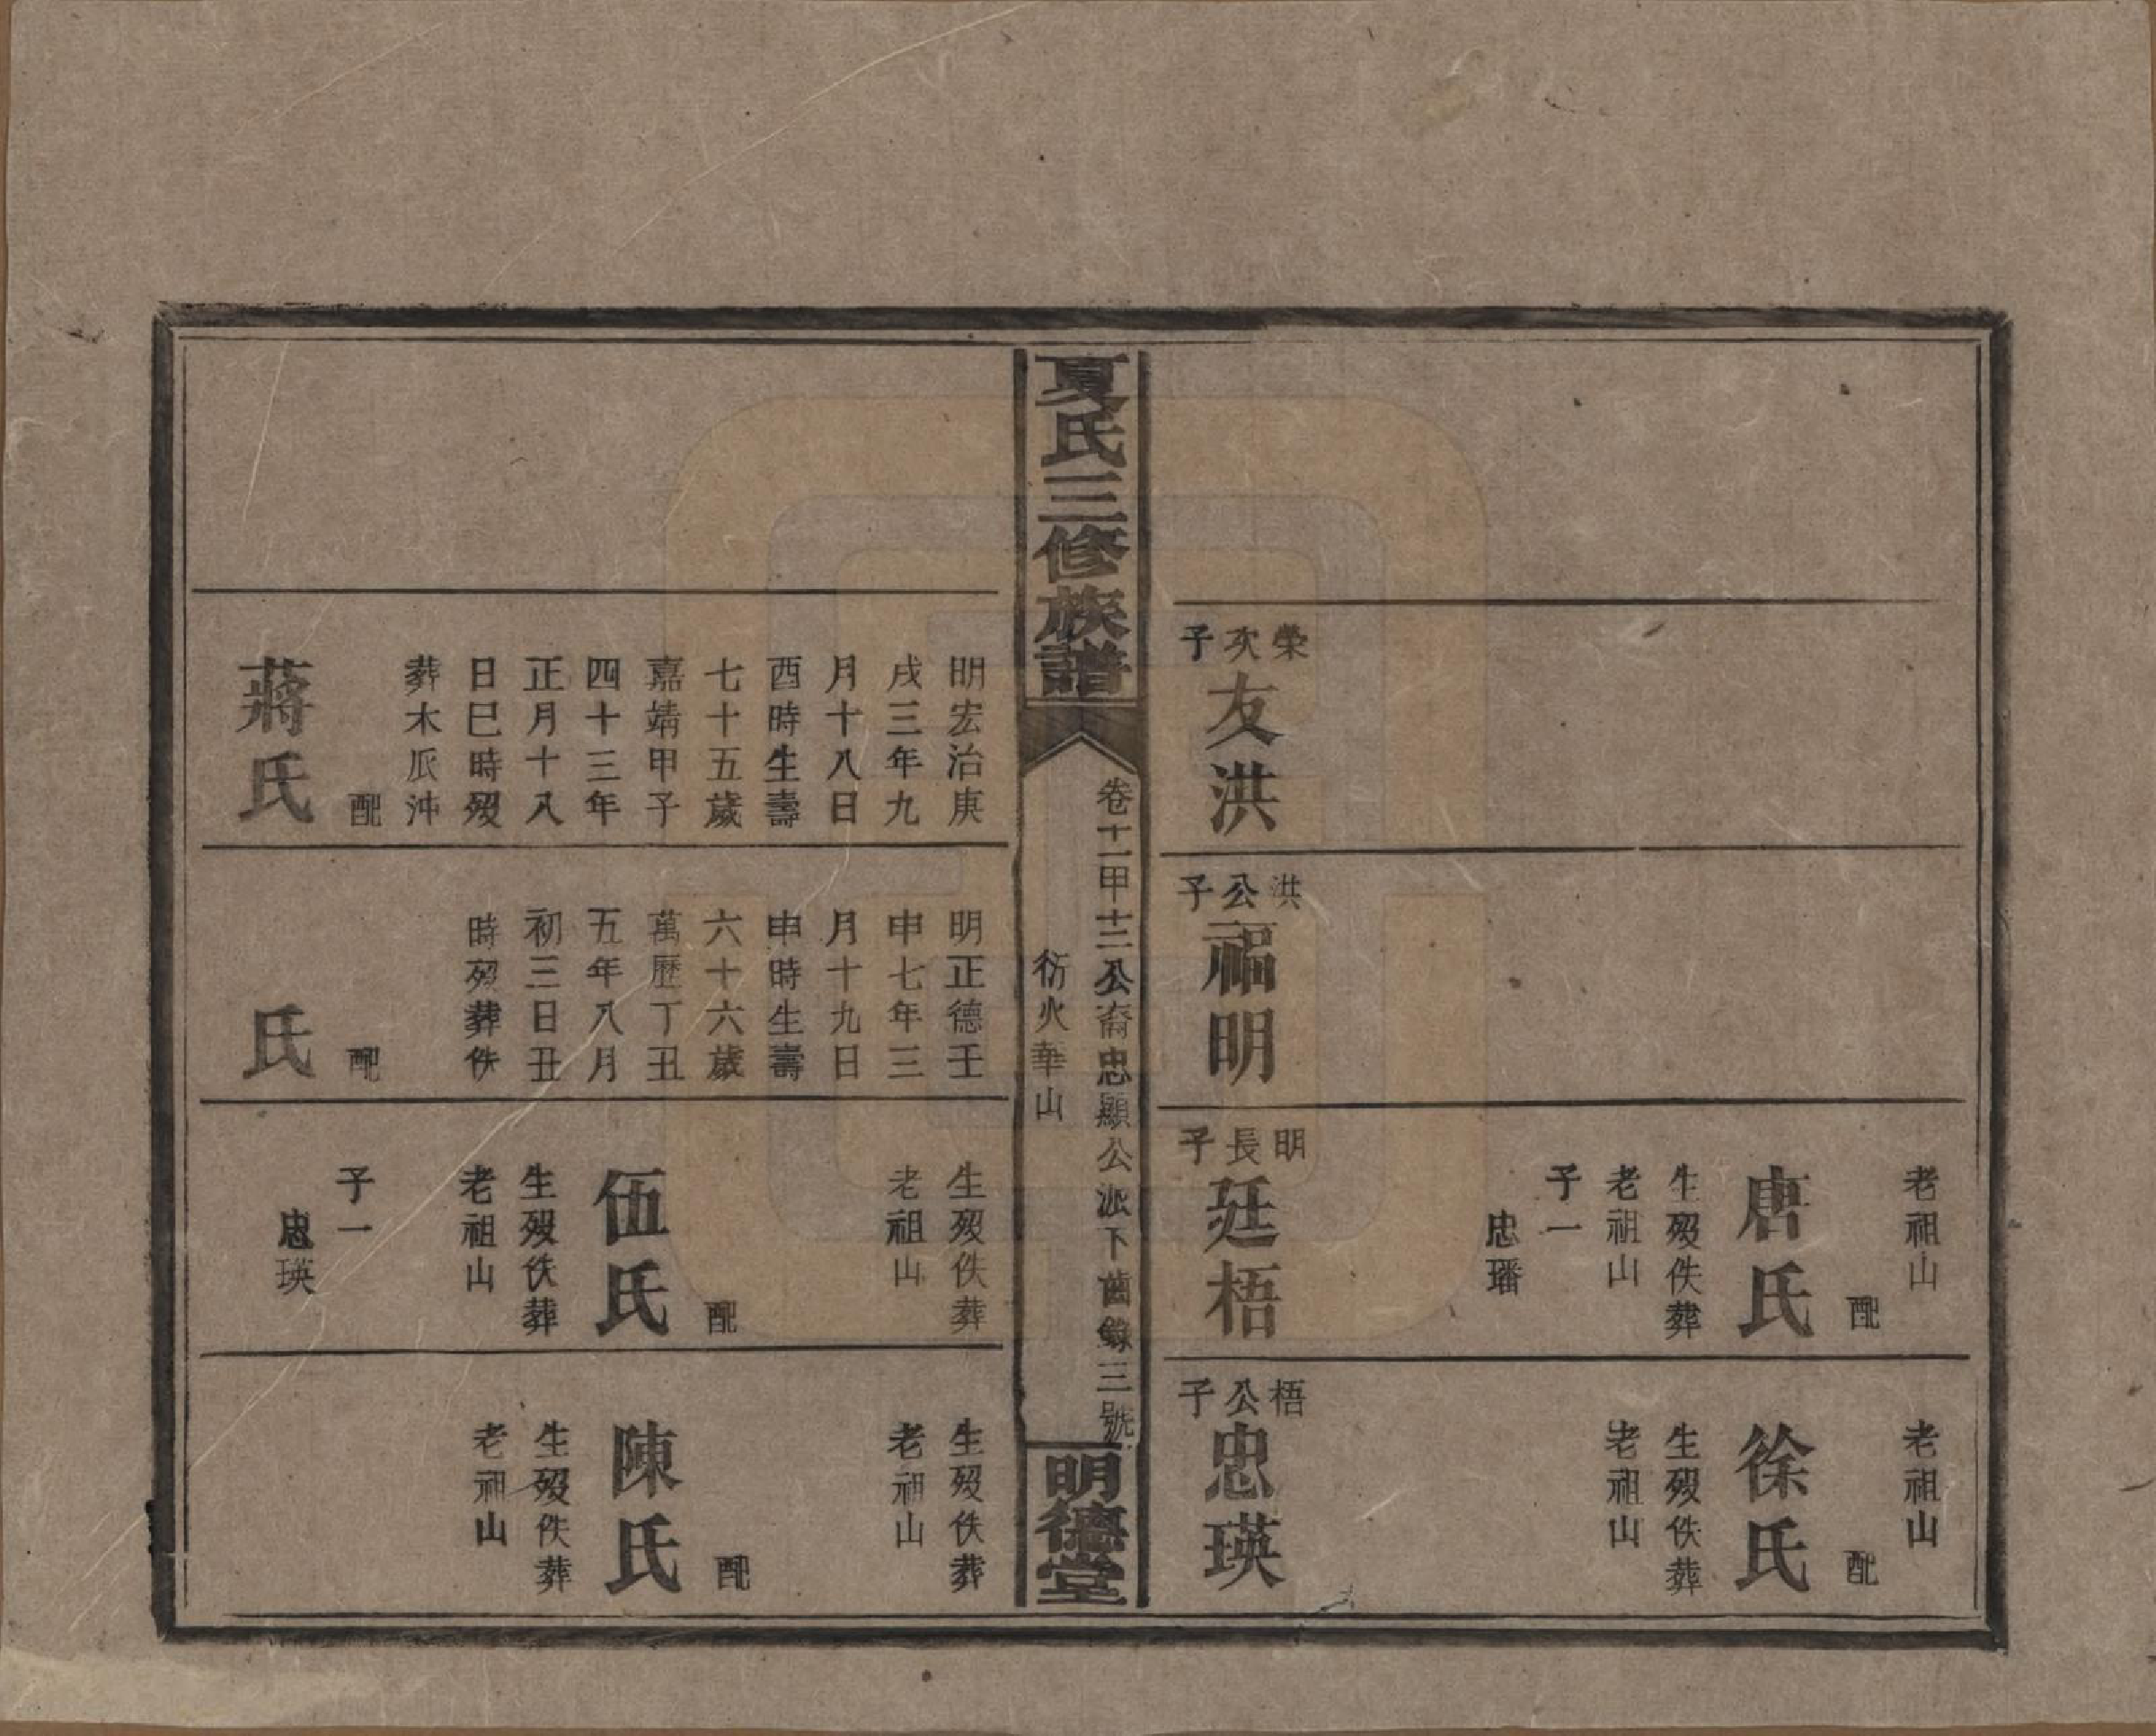 老祖山
配
唐氏
生歿佚葬
老祖山
子一
忠璠
老祖山
配
徐氏
生歿佚葬
老祖山
榮次子
友洪
洪公子
福明
明長子
廷梧
梧公子
忠瑛
夏氏三修族譜
卷十一甲十三公裔忠顯公派下齒錄三號
衍火華山
明德堂
明宏治庚
戌三年九
月十八日
酉時生壽
七十五歲
嘉靖甲子
四十三年
正月十八
日巳時歿
葬木辰沖
配
蔣氏
明正德壬
申七年三
月十九日
申時生壽
六十六歲
萬歷丁丑
五年八月
初三日丑
時歿葬佚
配
氏
生歿佚葬
老祖山
配
伍氏
生歿佚葬
老祖山
子一
忠瑛
生歿佚葬
老祖山
配
陳氏
生歿佚葬
老祖山